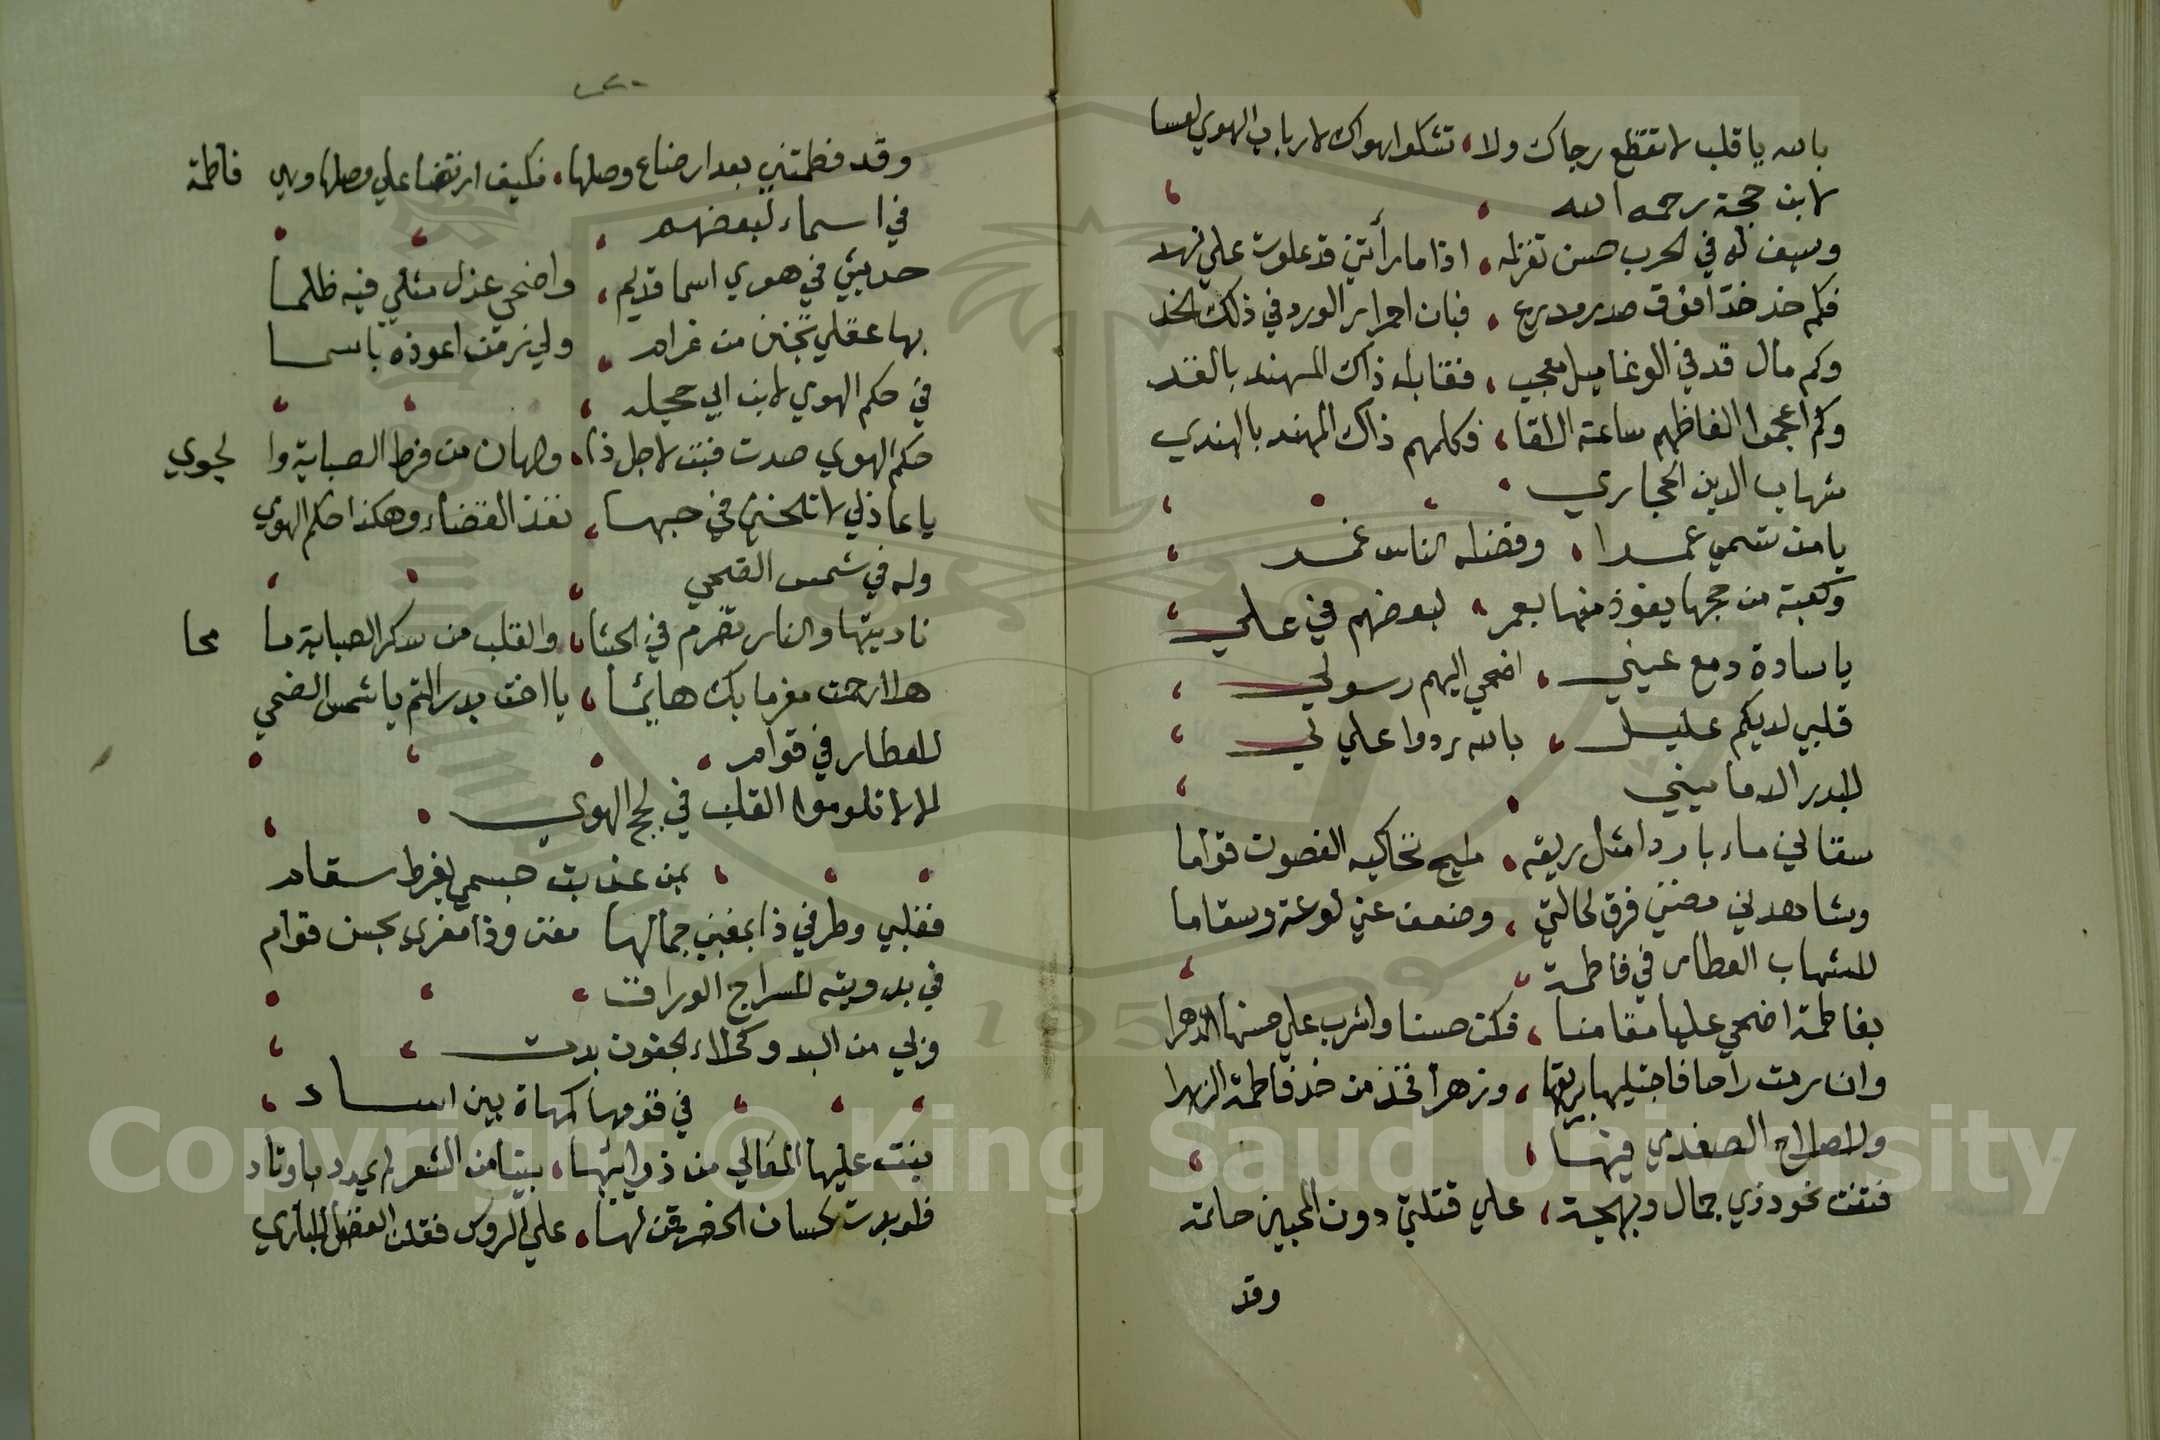 بالله يا قلب لا تقطع رجاك ولا تشكوا هواك لارباب الهوي لعسا
لابن حجة رحمه الله
وسيف له في الحرب حسن تغزله اذا ما رأتني قد علوت علي نهد
فكم خد خدّا فوق صدر مدرع فبان احمرار الورد في ذلك الخد
وكم مال قد في الوغا ميل معجب فقابله ذاك المهند بالقد
وكم اعجموا الفاظهم ساعة اللقا وكلمهم ذاك المهند بالهندي
شهاب الدين الحجازي
يا من تسمي عمرا وفضله الناس غمر
وكعبة من حجها يفوز منها بعمر لبعضهم في علي
يا سادة دمع عيني اضحي اليهم رسولي
قلبي لديكم عليل بالله ردوا علي لي
للبدر الدماميني
سقاني ماء باردا مثل ريقه مليح تحاكيه الغصون قواما
وشاهدني مضني فرق لحالتي وضعف عني لوعة وسقاما
للشهاب العطار في فاطمة
بفاطمة اضحي عليا مقامنا فكن حسنا واشرب علي حسنها الدهرا
وان رمت راحا فاجتليها بريقها وزهرا فخذ من خد فاطمة الزهرا
وللصلاح الصفدي فيها
فتنت بخود ذي جمال وبهجة علي قتلتي دون المحبين حائمة
وقد
وقد فطمتني بعد ارضاع وصلها فكيف ارتضا علي وصلها وهي فاطمة
في اسماء لبعضهم
حديثي في هوي اسما قديم واضحي عذل مثلي فيه ظلما
بها عقلي تجنن من غرام ولي زمن اعوذه باسما
في حكم الهوي لابن ابي حجله
حكم الهوي صدت فبت لاجل ذا ولهان من فرط الصبابة والجوي
يا عاذلي لا تلحني في حبها نفذ القضاء وهكذا حكم الهوي
وله في شمس الضحي
ناديتها والنار تضرم في الحشا والقلب من سكر الصبابة ما محا
هلا رحمت مغرما بك هايما يا اخت بدر التم يا شمس الضحي
للعطار في قوام
لا لا تلوموا القلب في لجج الهوي
بمن عذبت جسمي لفرط سقام
فقلبي وطرفي ذا بمغني جمالها مغني وذا مغري بحسن قوام
في بدوية للسراج الوراق
وبي من البدو كحلاء الجفون بدت
في قومها كمهاة بين اساد
بنت عليها المعالي من ذوايبها بيتا من الشعر لم يمدد باوتاد
فلو بدت لحسان الحضر قمن لها علي الروس فقلن الفضل للبادي